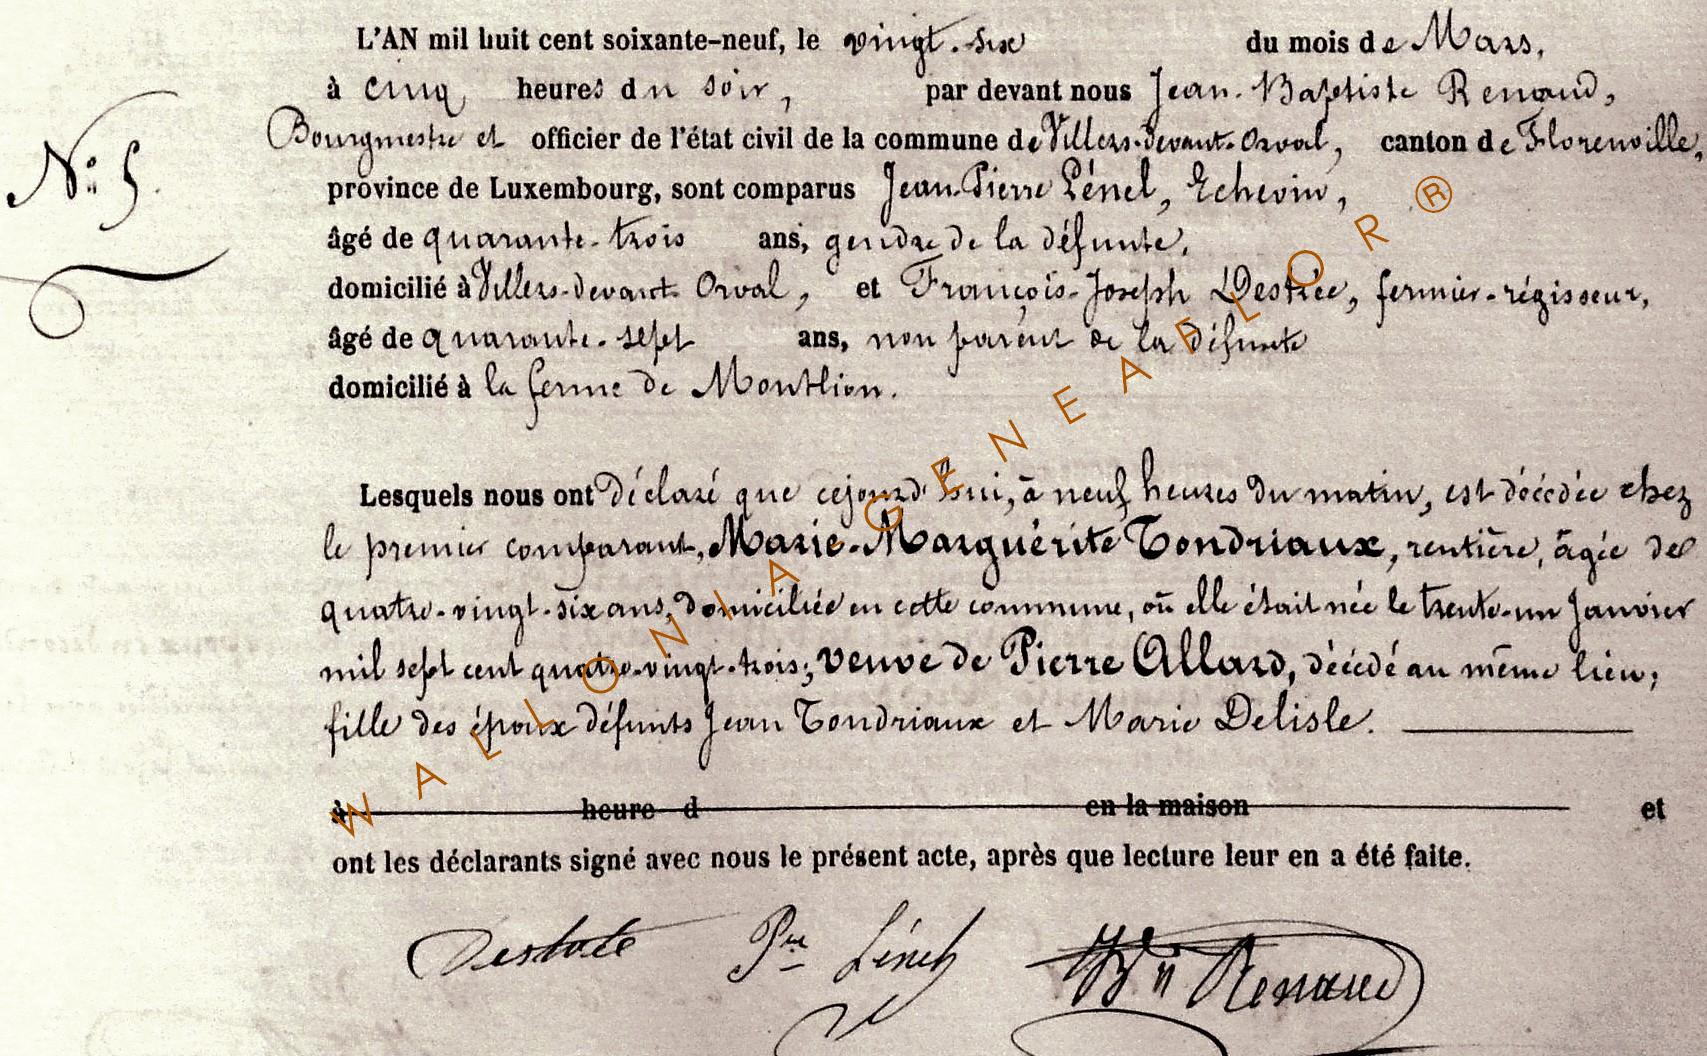 L'AN mil huit cent soixante-neuf, le vingt-six du mois de Mars,
à cinq heures du soir, par devant nous Jean-Baptiste Renaud,
Bourgmestre et officier de l'état civil de la commune de Villers-devant-Orval, canton de Florenville,
N° 5.
province de Luxembourg, sont comparus Jean-Pierre Lénel, Echevin,
âgé de quarante-trois ans, gendre de la défunte,
domicilié à Villers-devant Orval, et François-Joseph Destrée, fermier-régisseur,
âgé de quarante-sept ans, non parent de la défunte
domicilié à la ferme de Montlion.
Lesquels nous ont déclaré que cejourd'hui, à neuf heures du matin, est décédée chez
le premier comparant, Marie-Marguérite Tondriaux, rentière, âgée de
quatre-vingt-six ans, domiciliée en cette commune, où elle était née le trente-un Janvier
mil sept cent quatre-vingt-trois; veuve de Pierre Allard, décédé au même lieu;
fille des époux défunts Jean Tondriaux et Marie Delisle.
à heure d en la maison et
ont les déclarants signé avec nous le présent acte, après que lecture leur en a été faite.
Destrée Pre Lénel Renaud
WALLONIA GENEAFLOR ®